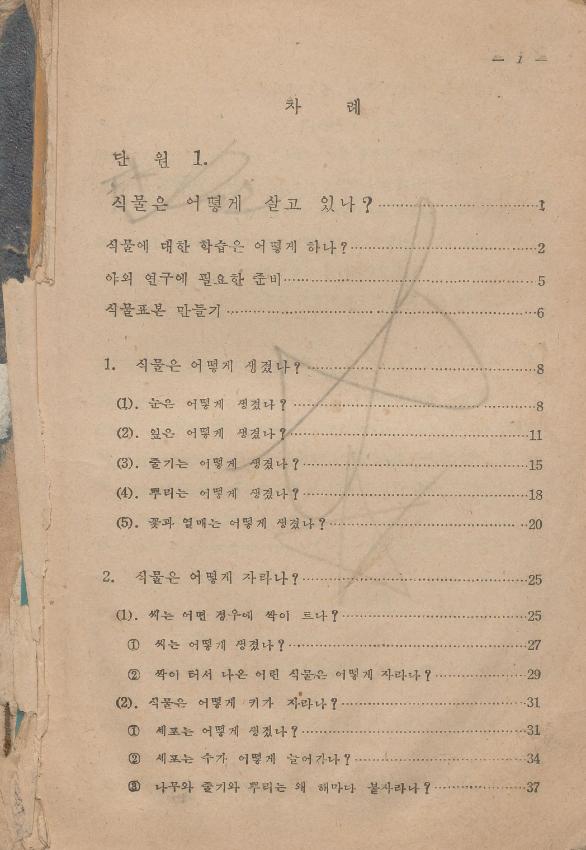 — 1 —
차 례
단 원 1.
식물은 어떻게 살고 있나?……………………1
식물에 대한 학습은 어떻게 하나?……………………2
야외 연구에 필요한 준비……………………5
식물표본 만들기……………………6
1. 식물은 어떻게 생겼나?……………………8
(1). 눈은 어떻게 생겼나?……………………8
(2). 잎은 어떻게 생겼나?……………………11
(3). 줄기는 어떻게 생겼나?……………………15
(4). 뿌리는 어떻게 생겼나?……………………18
(5). 꽃과 열매는 어떻게 생겼나?……………………20
2. 식물은 어떻게 자라나?……………………25
(1). 씨는 어떤 경우에 싹이 트나?……………………25
① 씨는 어떻게 생겼나?……………………27
② 싹이 터서 나온 어린 식물은 어떻게 자라나?……………………29
(2). 식물은 어떻게 키가 자라나?……………………31
① 세포는 어떻게 생겼나?……………………31
② 세포는 수가 어떻게 늘어가나?……………………34
③ 나무와 줄기와 뿌리는 왜 해마다 불자라나?……………………37